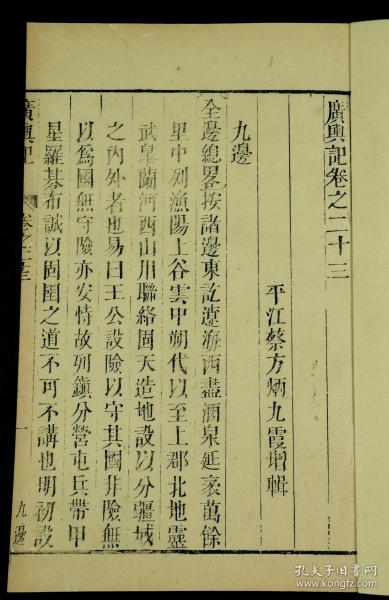 廣輿記卷之二十三
平江蔡方炳九霞增輯
九邊
全邊總畧按諸邊東訖遼海西盡酒泉延袤萬餘
里中列漁陽上谷雲中朔代以至上郡北地靈
武皐蘭河西山川聯絡固天造地設以分疆域
之內外者也易曰王公設險以守其國非險無
以爲國無守險亦安恃故列鎮分營屯兵帶甲
星羅碁布誠以固圉之道不可不講也明初設
廣輿記
卷之二十三
一
九邊
孔夫子旧书网